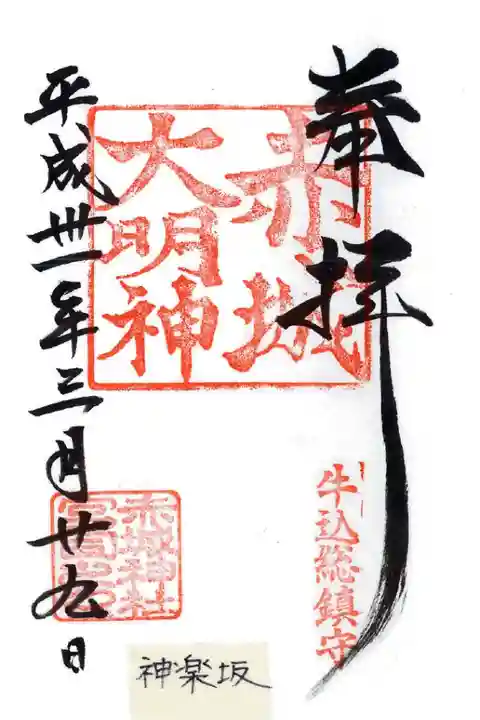 奉拝
赤城
大明神
牛込総鎮守
平成丗一年三月廿九日
赤城神社
宮司之印
神楽坂